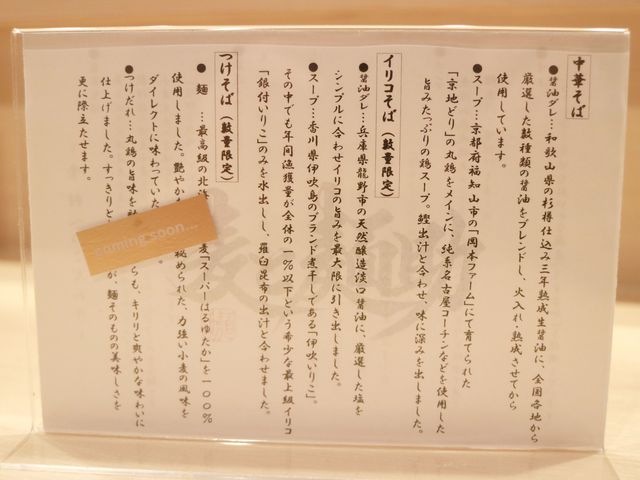 中華そば
●醤油ダレ…和歌山県の杉樽仕込み三年熟成生醤油に、全国各地から
厳選した数種類の醤油をブレンドし、火入れ・熟成させてから
使用しています。
●スープ…京都府福知山市の「岡本ファーム」にて育てられた
「京地どり」の丸鶏をメインに、純系名古屋コーチンなどを使用した
旨みたっぷりの鶏スープ。鰹出汁と合わせ、味に深みを出しました。
イリコそば（数量限定）
●醤油ダレ…兵庫県龍野市の天然醸造淡口醤油に、厳選した塩を
シンプルに合わせイリコの旨みを最大限に引き出しました。
●スープ…香川県伊吹島のブランド煮干しである「伊吹いりこ」。
その中でも年間漁獲量が全体の１％以下という希少な最上級イリコ
「銀付いりこ」のみを水出しし、羅臼昆布の出汁と合わせました。
つけそば（数量限定）
●麺…最高級の北海 麦「スーパーはるゆたか」を１００％
使用しました。艶やか 秘められた、力強い小麦の風味を
ダイレクトに味わってい
●つけだれ…丸鶏の旨味を らも、キリリと爽やかな味わいに
仕上げました。すっきりと が、麺そのものの美味しさを
更に際立たせます。
coming soon...